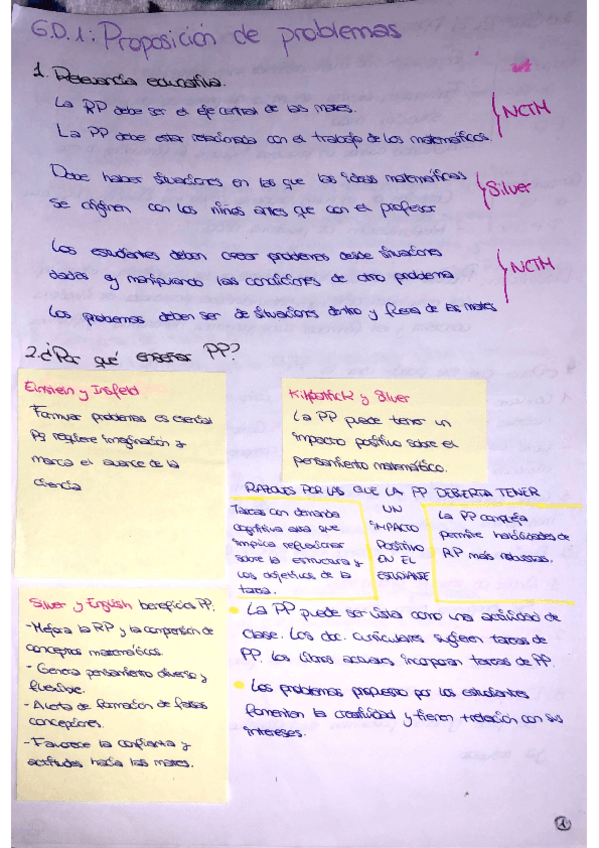 G.D.1: Proposición de problemas
1. Relevancia educativa.
La RP debe ser el eje central de las mates.
La PP debe estar relacionada con el trabajo de los matemáticos.
NCTM
Debe haber situaciones en las que las ideas matemáticas
se originen con los niños antes que con el profesor
Silver
Los estudiantes deben crear problemas desde situaciones
dadas y manipulando las condiciones de otro problema
Los problemas deben ser de situaciones dentro y fuera de las mates
NCTM
2. ¿Por qué enseñar PP?
Einstein y Insfeld
Formular problemas es esencial
pq requiere imaginación y
marca el avance de la
ciencia
Kilpatrick y Silver
La PP puede tener un
impacto positivo sobre el
pensamiento matemático.
RAZONES POR LAS QUE LA PP DEBERÍA TENER
UN
IMPACTO
POSITIVO
EN EL
ESTUDIANTE
Tareas con demanda
cognitiva alta que
implica reflexionar
sobre la estructura y
los objetivos de la
tarea.
La PP compleja
permite habilidades de
RP más robustas.
Silver y English beneficios PP.
- Mejora la RP y la comprensión de
conceptos matemáticos.
- Genera pensamiento diverso y
flexible.
- Alerta de formación de falsas
concepciones.
- Favorece la confianza y
actitudes hacia las mates.
La PP puede ser vista como una actividad de
clase. Los doc. curriculares sugieren tareas de
PP. Los libros actuales incorporan tareas de PP.
Los problemas propuesto por los estudiantes
fomenten la creatividad y tienen + relación con sus
intereses.
1